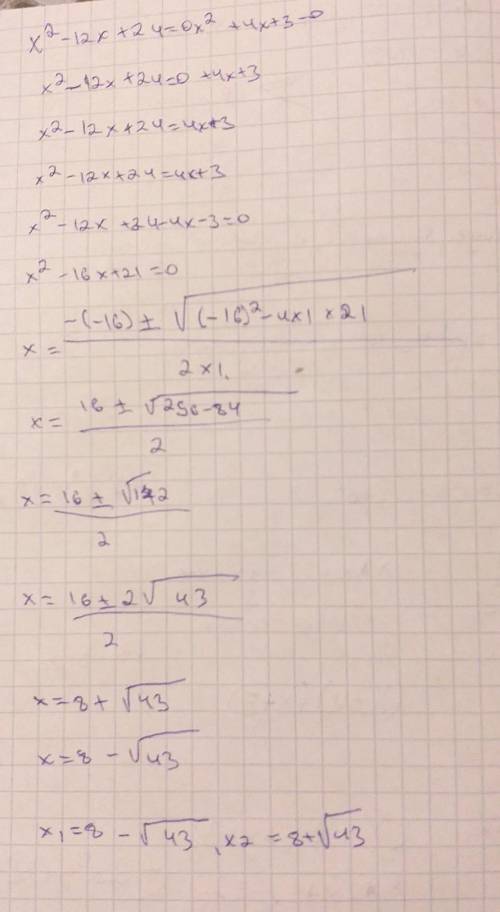 x² - 12x + 24 = 0x² + 4x + 3 - 0
x² - 12x + 24 = 0 + 4x + 3
x² - 12x + 24 = 4x + 3
x² - 12x + 24 = 4x + 3
x² - 12x + 24 - 4x - 3 = 0
x² - 16x + 21 = 0
x = (-(-16) ± √((-16)² - 4×1×21)) / (2×1)
x = (16 ± √(256 - 84)) / 2
x = (16 ± √172) / 2
x = (16 ± 2√43) / 2
x = 8 + √43
x = 8 - √43
x₁ = 8 - √43, x2 = 8 + √43